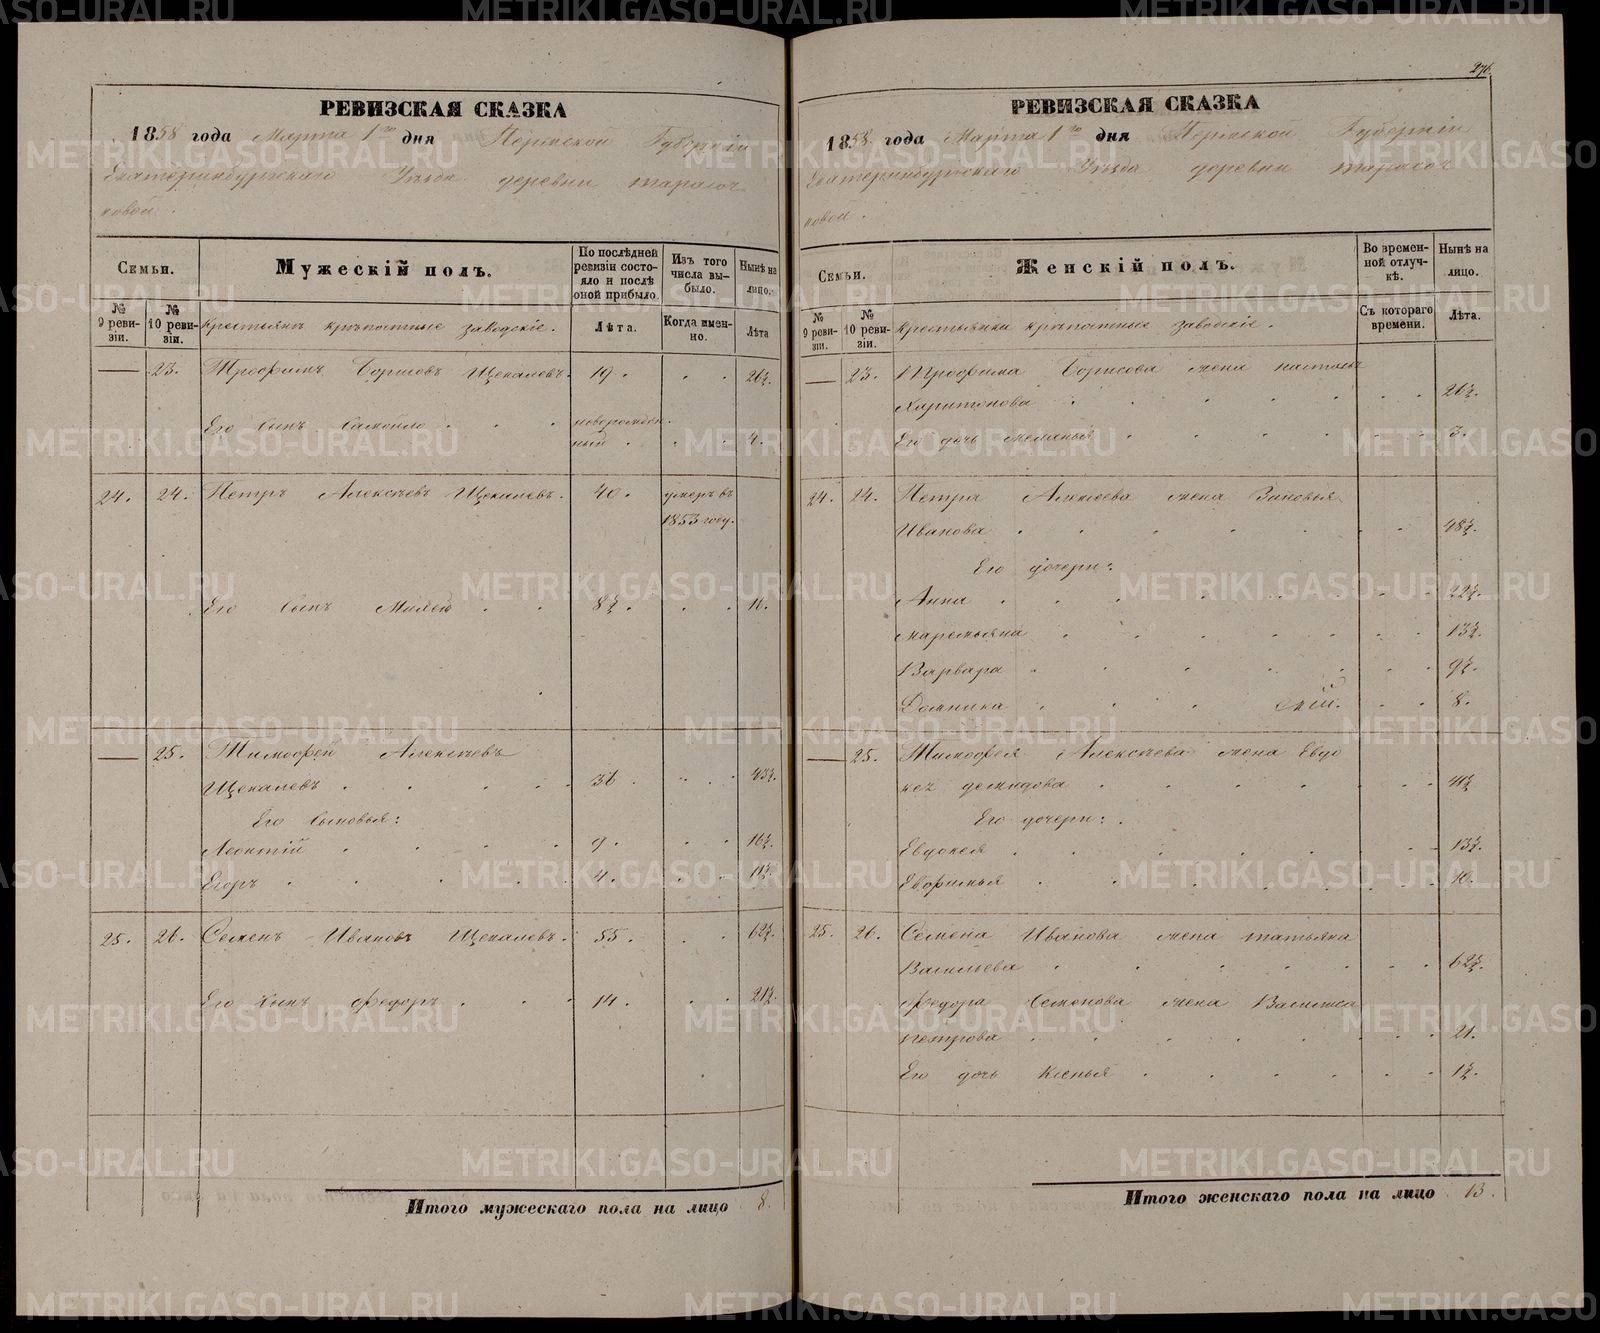 РЕВИЗСКАЯ СКАЗКА
1858 года Марта 1го дня Пермской Губерніи
Екатеринбургскаго Уѣзда деревни Тарасо
ковой.
Семьи.
Мужескій полъ.
По послѣдней ревизіи состояло и послѣ оной прибыло.
Изъ того числа выбыло.
Нынѣ на лицо.
№ 9 ревизіи.
№ 10 ревизіи.
Крестьянъ крѣпостные заводскіе.
Лѣта.
Когда именно.
Лѣта
— 23. Трофимъ Борисовъ Щекалевъ. 19. 26½.
Его сынъ Самойло новорожден
ный 4.
24. 24. Петръ Алексѣевъ Щекалевъ. 40. умеръ въ
1853 году.
Его сынъ 8½. 16.
— 25. Тимофей Алексѣевъ
Щекалевъ 36 43½.
Его сыновья:
Леонтій 9. 16½.
Егоръ 4. 11½.
25. 26. Семенъ Ивановъ Щекалевъ. 55. 62½.
Его сынъ Федоръ 14. 21½.
Итого мужескаго пола на лицо 8.
276.
РЕВИЗСКАЯ СКАЗКА
1858 года Марта 1го дня Пермской Губерніи
Екатеринбургскаго Уѣзда деревни Тарасо
ковой.
Семьи.
Женскій полъ.
Во временной отлучкѣ.
Нынѣ на лицо.
№ 9 ревизіи.
№ 10 ревизіи.
Крестьянки крѣпостные заводскіе.
Съ котораго времени.
Лѣта.
— 23. Трофима Борисова жена Настасья
Харитонова 26½.
Его дочь 3.
24. 24. Петра Алексеева жена Зиновья
Иванова 48½.
Его дочери:
Анна 22½.
Маремьяна 13½.
Варвара 9½.
Домника 8.
— 25. Тимофея Алексѣева жена Евдо
кея Демидова 41½
Его дочери:
Евдокея 13½.
Евфимья 10.
25. 26. Семена Иванова жена Татьяна
Васильева 62½.
Федора Семенова жена Василиса
Петрова 21.
Его дочь Ксенья 1½.
Итого женскаго пола на лицо 13.
METRIKI.GASO-URAL.RU